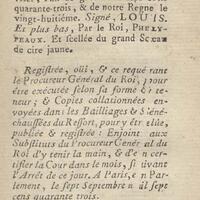 quarante-trois, & de notre Regne le
vingt-huitiéme. Signé, LOUIS.
Et plus bas, Par le Roi, PHELY-
PEAUX. Et scellée du grand Sceau
de cire jaune.
Registrée, oui, & ce requérant
le Procureur Général du Roi, pour
être exécutée selon sa forme & te-
neur; & Copies collationnées en-
voyées dans les Bailliages & Séné-
chaussées du Ressort, pour y être lûe,
publiée & registrée: Enjoint aux
Substituts du Procureur Général du
Roi d'y tenir la main, & d'en cer-
tifier la Cour dans le mois, suivant
l'Arrêt de ce jour. A Paris, en Par-
lement, le sept Septembre mil sept
cens quarante trois.